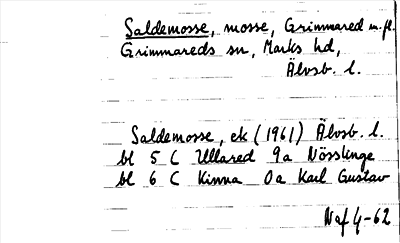 Saldemosse, mosse, Grimmared m.fl.
Grimmareds sn, Marks hd,
Älvsb. l.
Saldemosse, ek (1961) Älvsb. l.
bl 5 C Ullared 9a Nösslinge
bl 6 C Kinna 0a Karl Gustav
Naf 4-62